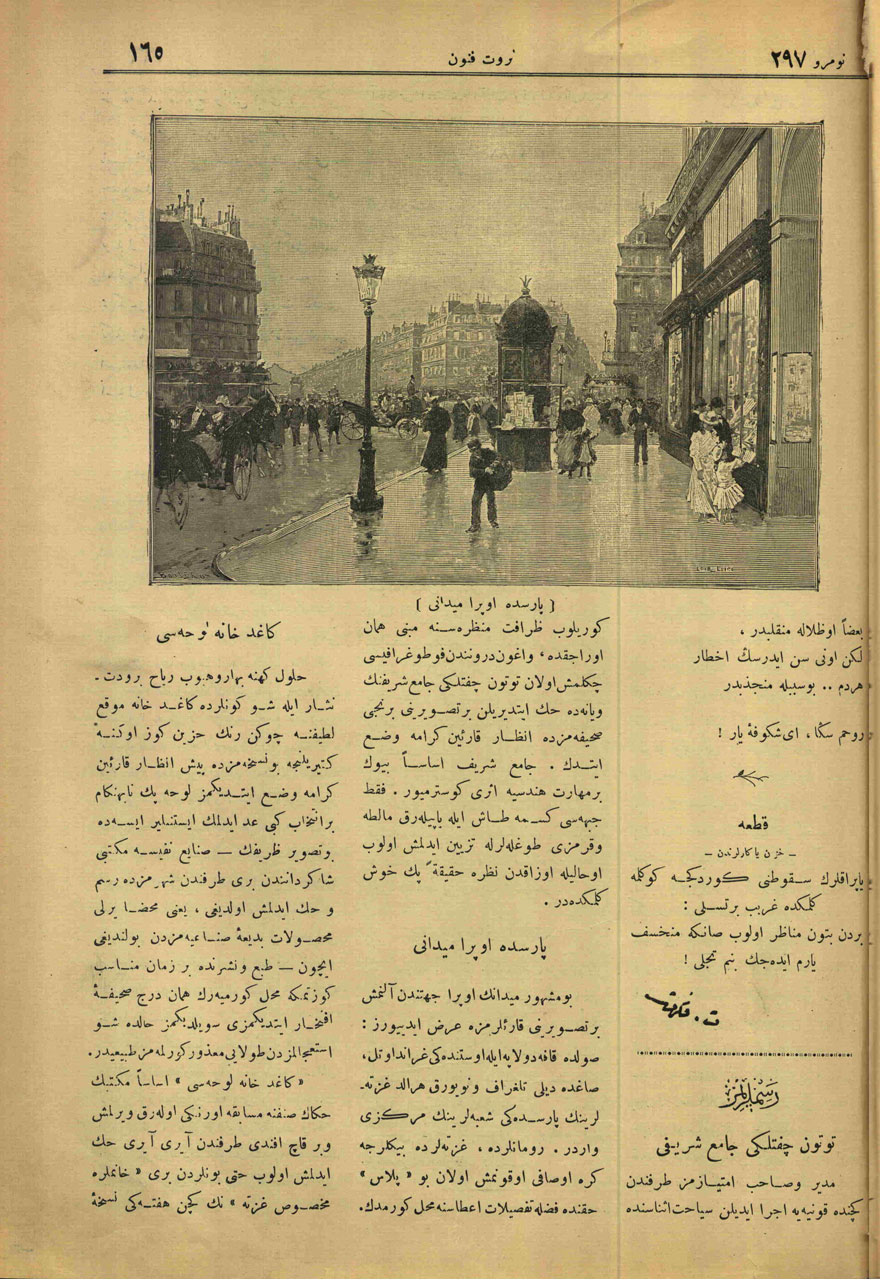 نومرو ٢٩٧
ثروت فنون
١٦٥
{ پارسده اوپرا میدانی }
بعضاً اوظلاله منقلبدر ،
لكن اونی سن ایدرسك اخطار
هردم .. بوسبیله منجذبدر
روحم سكا ، ای شكوفهٔ یار !
قطعه
یاپراقلرك سقوطنی كوردكجه كوكلمه
كلمكده غریب برتسلی :
بردن بتون مناظر اولوب صانكه منخسف
یارم ایده‌جك بنم تجلی !
ت . فكرت
رسملریمز
توتون چفتلكی جامع شریفی
مدیر وصاحب امتیازمز طرفندن
كچنده قونیه‌یه اجرا ایدیلن سیاحت اثناسنده
كوریلوب ظرافت منظره‌سنه مبنی همان
اوراجقده ، واغون درونندن فوطوغرافیسی
چكلمش اولان توتون چفتلكی جامع شریفنك
ویانه‌ده حك ایتدیریلن برتصویرینی برنجی
صحیفه‌مزده انظار قارئین كرامه وضع
ایتدك . جامع شریف اساساً بیوك
برمهارت هندسیه اثری كوسترمیور . فقط
جبهه‌سی كسمه طاش ایله یاپیله‌رق مالطه
وقرمزی طوغله‌لرله تزیین ایدلمش اولوب
اوحالیله اوزاقدن نظره حقیقةً پك خوش
كلمكده‌در .
پارسده اوپرا میدانی
بومشهور میدانك اوپرا جهتندن آلنمش
برتصویرینی قارئلرمزه عرض ایدییورز :
صولده قافه دولاپه ایله اوستنده‌كی غراند اوتل ،
صاغده دیلی تلغراف ونویورق هرالد غزته‌ـ
لرینك پارسده‌كی شعبه‌لرینك مركزی
واردر . رومانلرده ، غزته‌لرده بیكلرجه
كره اوصافی اوقونمش اولان بو « پلاس »
حقنده فضله تفصیلات اعطاسنه محل كورمدك .
كاغد خانه لوحه‌سی
حلول كهنه بهار وهبوب ریاح برودت ـ
نثار ایله شو كونلرده كاغد خانه موقع
لطیفنه چوكن رنك حزین كوز اوكنه
كتیریلنجه بونسخه‌مزده پیش انظار قارئین
كرامه وضع ایتدیكمز لوحه پك نابهنكام
برانتخاب كبی عد ایدلمك ایستنیلیر ایسه‌ده
بوتصویر ظریفك — صنایع نفیسه مكتبی
شاكرداندن بری طرفندن شهرمزده رسم
و حك ایدلمش اولدیغی ، یعنی محضا یرلی
محصولات بدیعهٔ صناعیه‌مزدن بولندیغی
ایچون — طبع ونشرنده بر زمان مناسب
كوزتمكه محل كورمیه‌رك همان درج صحیفهٔ
افتخار ایتدیكمزی سویلدیكمز حالده شو
استعجالمزدن طولایی معذور كورلمه‌مز طبیعیدر .
« كاغد خانه لوحه‌سی » اساساً مكتبك
حكاك صنفنه مسابقه اورنكی اوله‌رق ویرلمش
وبر قاچ افندی طرفندن آیری آیری حك
ایدلمش اولوب حتی بونلردن بری « خانملره
مخصوص غزته » نك كچن هفته‌كی نسخهٔ